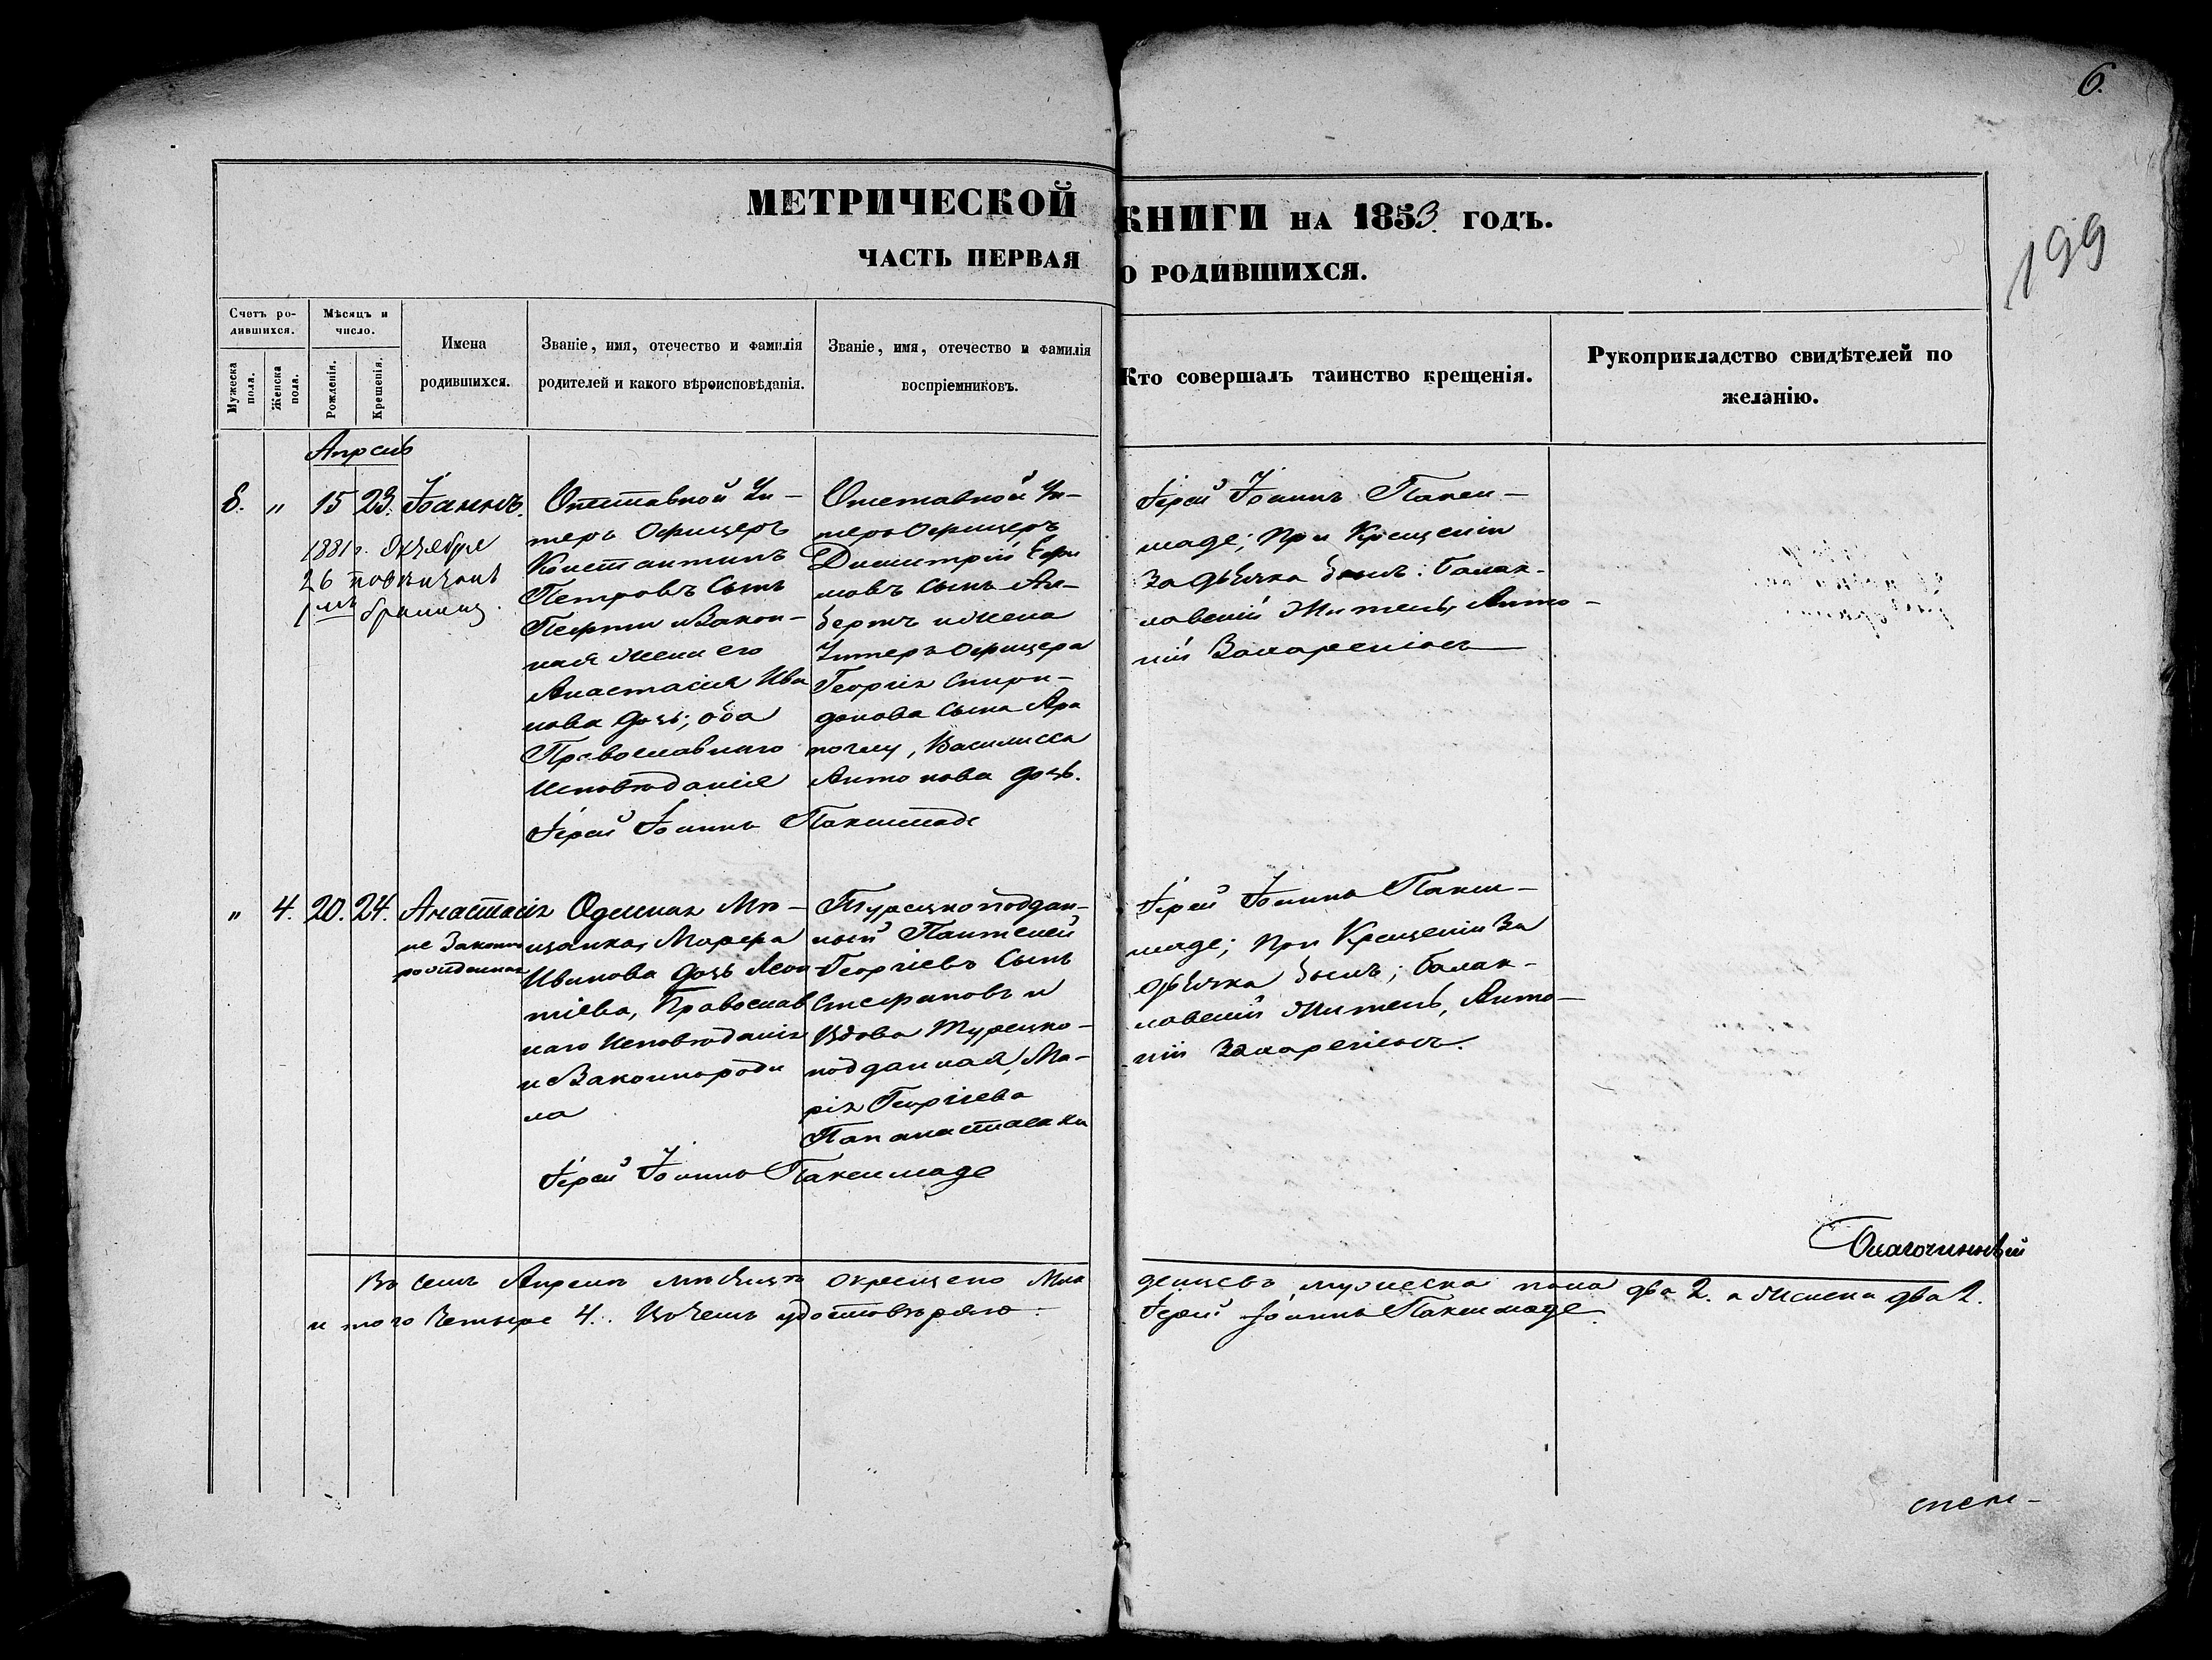 6.
199
МЕТРИЧЕСКОЙ КНИГИ НА 1853 ГОДЪ.
ЧАСТЬ ПЕРВАЯ О РОДИВШИХСЯ.
Счетъ ро-
дившихся.
Мужеска
пола.
Женска
пола.
Мѣсяцъ и
число.
Рожденія.
Крещенія.
Имена
родившихся.
Званіе, имя, отечество и фамилія
родителей и какого вѣроисповѣданія.
Званіе, имя, отечество и фамилія
воспріемниковъ.
Кто совершалъ таинство крещенія.
Рукоприкладство свидѣтелей по
желанію.
Апрель
8. " 15 23. Іоаннъ.
1881 г. Октября
26
Отставной Ун-
теръ Офицеръ
Константинъ
Петровъ Сынъ
и Закон-
ная жена его
Анастасія Ива
нова дочь; оба
Православнаго
Исповѣданія
Отставной Ун-
теръ Офицеръ
Димитрій
Сынъ
и жена
Унтеръ Офицера
Георгія Спири-
донова Сына Ара
почлу, Василисса
Антонова дочь.
Іерей Іоаннъ Паксимаде
Іерей Іоаннъ Пакси-
маде; При Крещеніи
За дьячка былъ: балак-
лавскій Житель, Анто-
ній
" 4. 20. 24. Анастасія
не Законно
рожденная
Одесская Мѣ-
щанка, Марфа
Иванова дочь Леон
тіева, Православ
наго Исповѣданія
и Законнороди
ла
Турецкоподдан-
ный Пантелей
Георгіевъ Сынъ
Стефановъ и
Вдова Турецко-
подданная, Ма-
рія Георгіева
Папанастасаки
Іерей Іоаннъ Паксимаде
Іерей Іоаннъ Пакси-
маде; При Крещеніи За
дьячка былъ; балак-
лавскій Житель, Анто-
ній
Благочинный
Въ семъ Апрелѣ мѣсяцѣ окрещено Мла денцевъ мужеска пола два 2. а женска два 2.
итого Четыре 4. Въ чемъ удостовѣряю Іерей Іоаннъ Паксимаде.